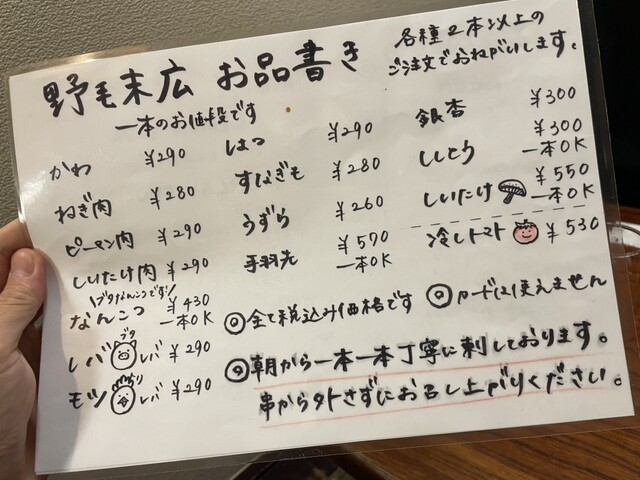 野毛末広 お品書き
各種2本以上の
ご注文でおねがいします。
一本のお値段です
かわ ¥290
ねぎ肉 ¥280
ピーマン肉 ¥290
しいたけ肉 ¥290
ブタなんこつです!
なんこつ ¥430
一本OK
ブタ
レバ レバ ¥290
モツ レバ ¥290
はつ ¥290
すなぎも ¥280
うずら ¥260
手羽先 ¥570
一本OK
銀杏 ¥300
ししとう ¥300
一本OK
しいたけ ¥550
一本OK
冷しトマト ¥530
◎全て税込み価格です
◎カードは使えません
◎朝から一本一本丁寧に刺しております。
串から外さずにお召し上がりください。